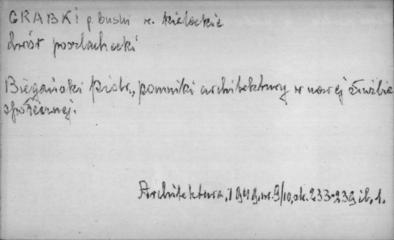 GRABKI p. buski w. kieleckie
dwór poszlachecki
Biegański Piotr, pomniki architektury w nowej służbie
społecznej.
Architektura, 1949, nr. 9/10, ok. 233-239 il. 1.